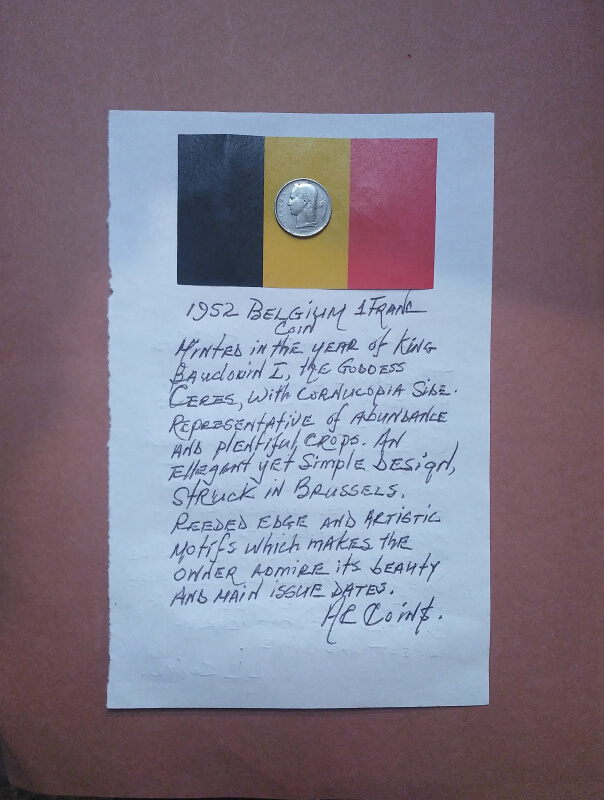 1952 BELGIUM 1 FRANC
COIN
MINTED IN THE YEAR OF KING
BAUDOUIN I, THE GODDESS
CERES, WITH CORNUCOPIA SIDE.
REPRESENTATIVE OF ABUNDANCE
AND PLENTIFUL CROPS. AN
ELLEGANT YET SIMPLE DESIGN,
STRUCK IN BRUSSELS.
REEDED EDGE AND ARTISTIC
MOTIFS WHICH MAKES THE
OWNER ADMIRE ITS BEAUTY
AND MAIN ISSUE DATES.